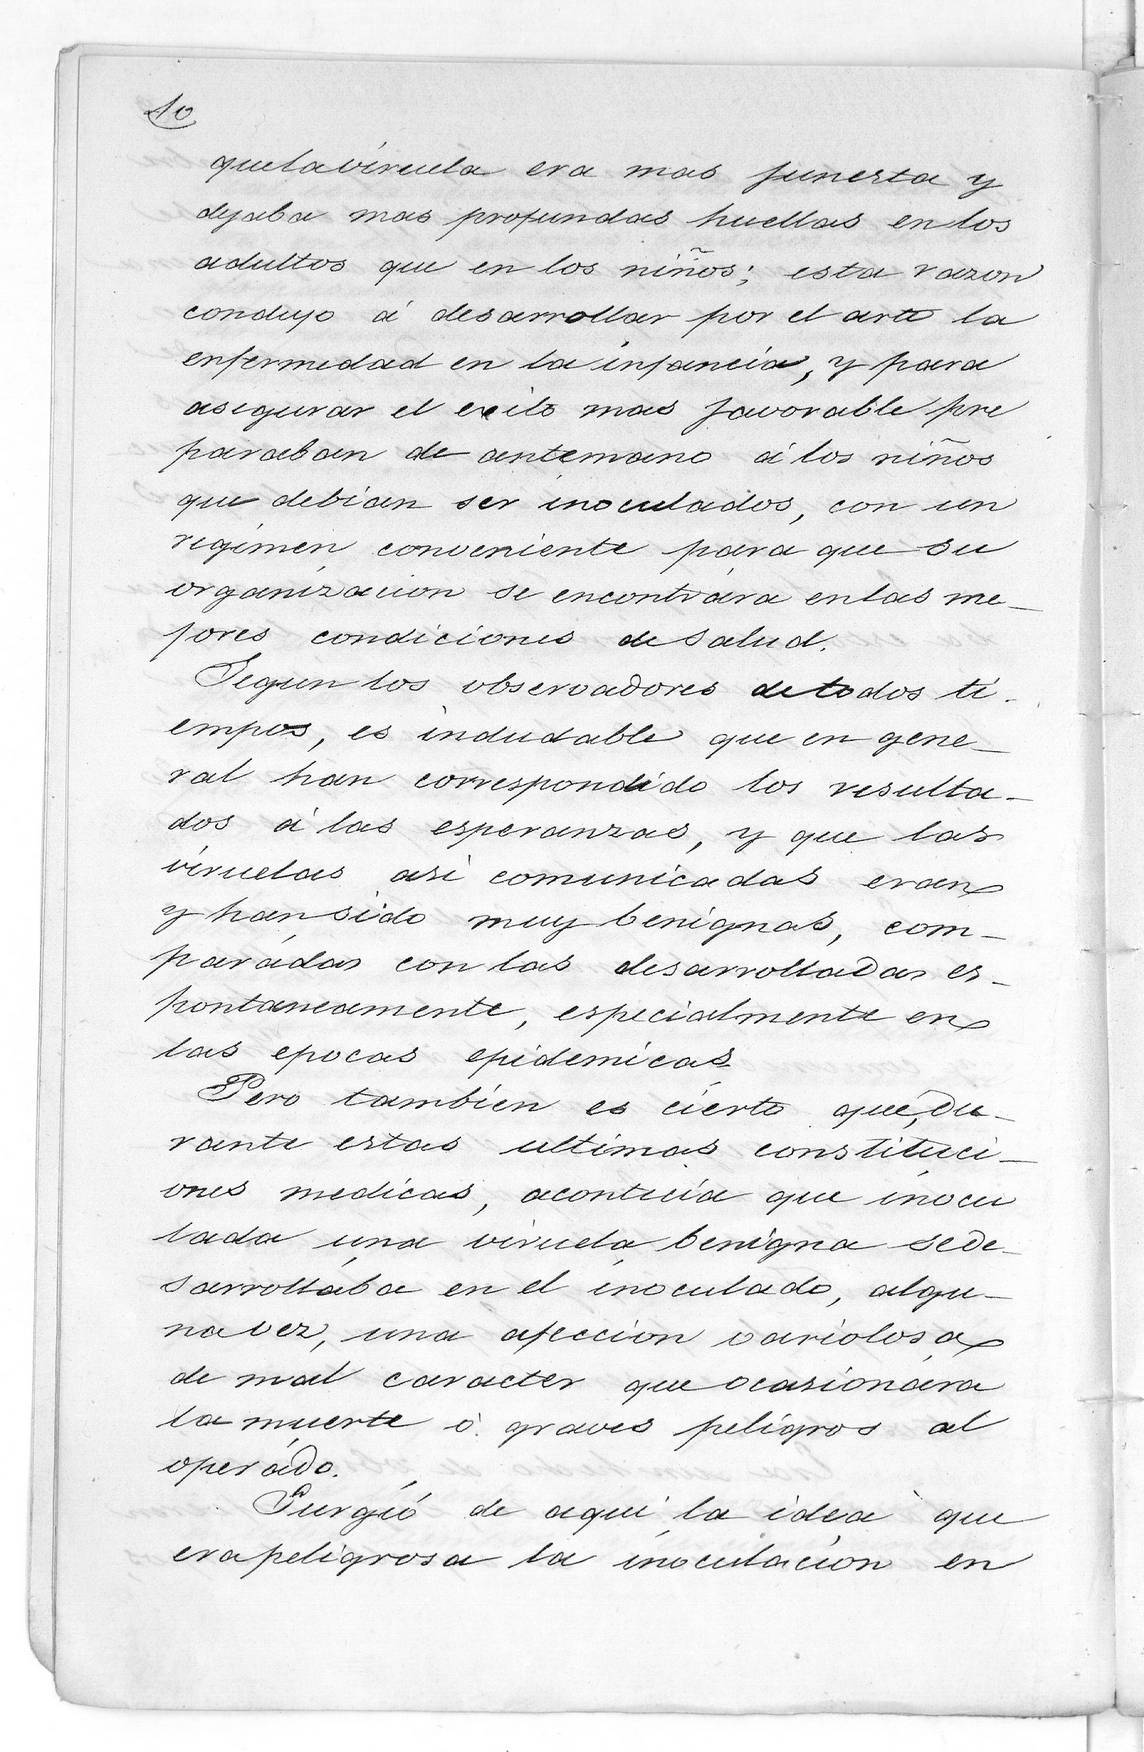 10
que la viruela era mas funesta y
dejaba mas profundas huellas en los
adultos que en los niños; esta razon
condujo á desarrollar por el arte la
enfermedad en la infancia, y para
asegurar el exito mas favorable pre
paraban de antemano á los niños
que debian ser inoculados, con un
regimen conveniente para que su
organizacion se encontrára en las me-
jores condiciones de salud.
Segun los observadores de todos ti-
empos, es indudable que en gene-
ral han correspondido los resulta-
dos á las esperanzas, y que las
viruelas asi comunicadas eran
y han sido muy benignas, com-
parádas con las desarrolladas es-
pontaneamente, especialmente en
las epocas epidemicas
Pero tambien es cierto que, du-
rante estas ultimas constituci-
ones medicas, acontecia que inocu
lada una viruela benigna se de-
sarrollaba en el inoculado, algu-
na vez, una afeccion variolosa
de mal caracter que ocasionára
la muerte ó graves peligros al
operádo.
Surgió de aqui la idea que
era peligrosa la inoculacion en